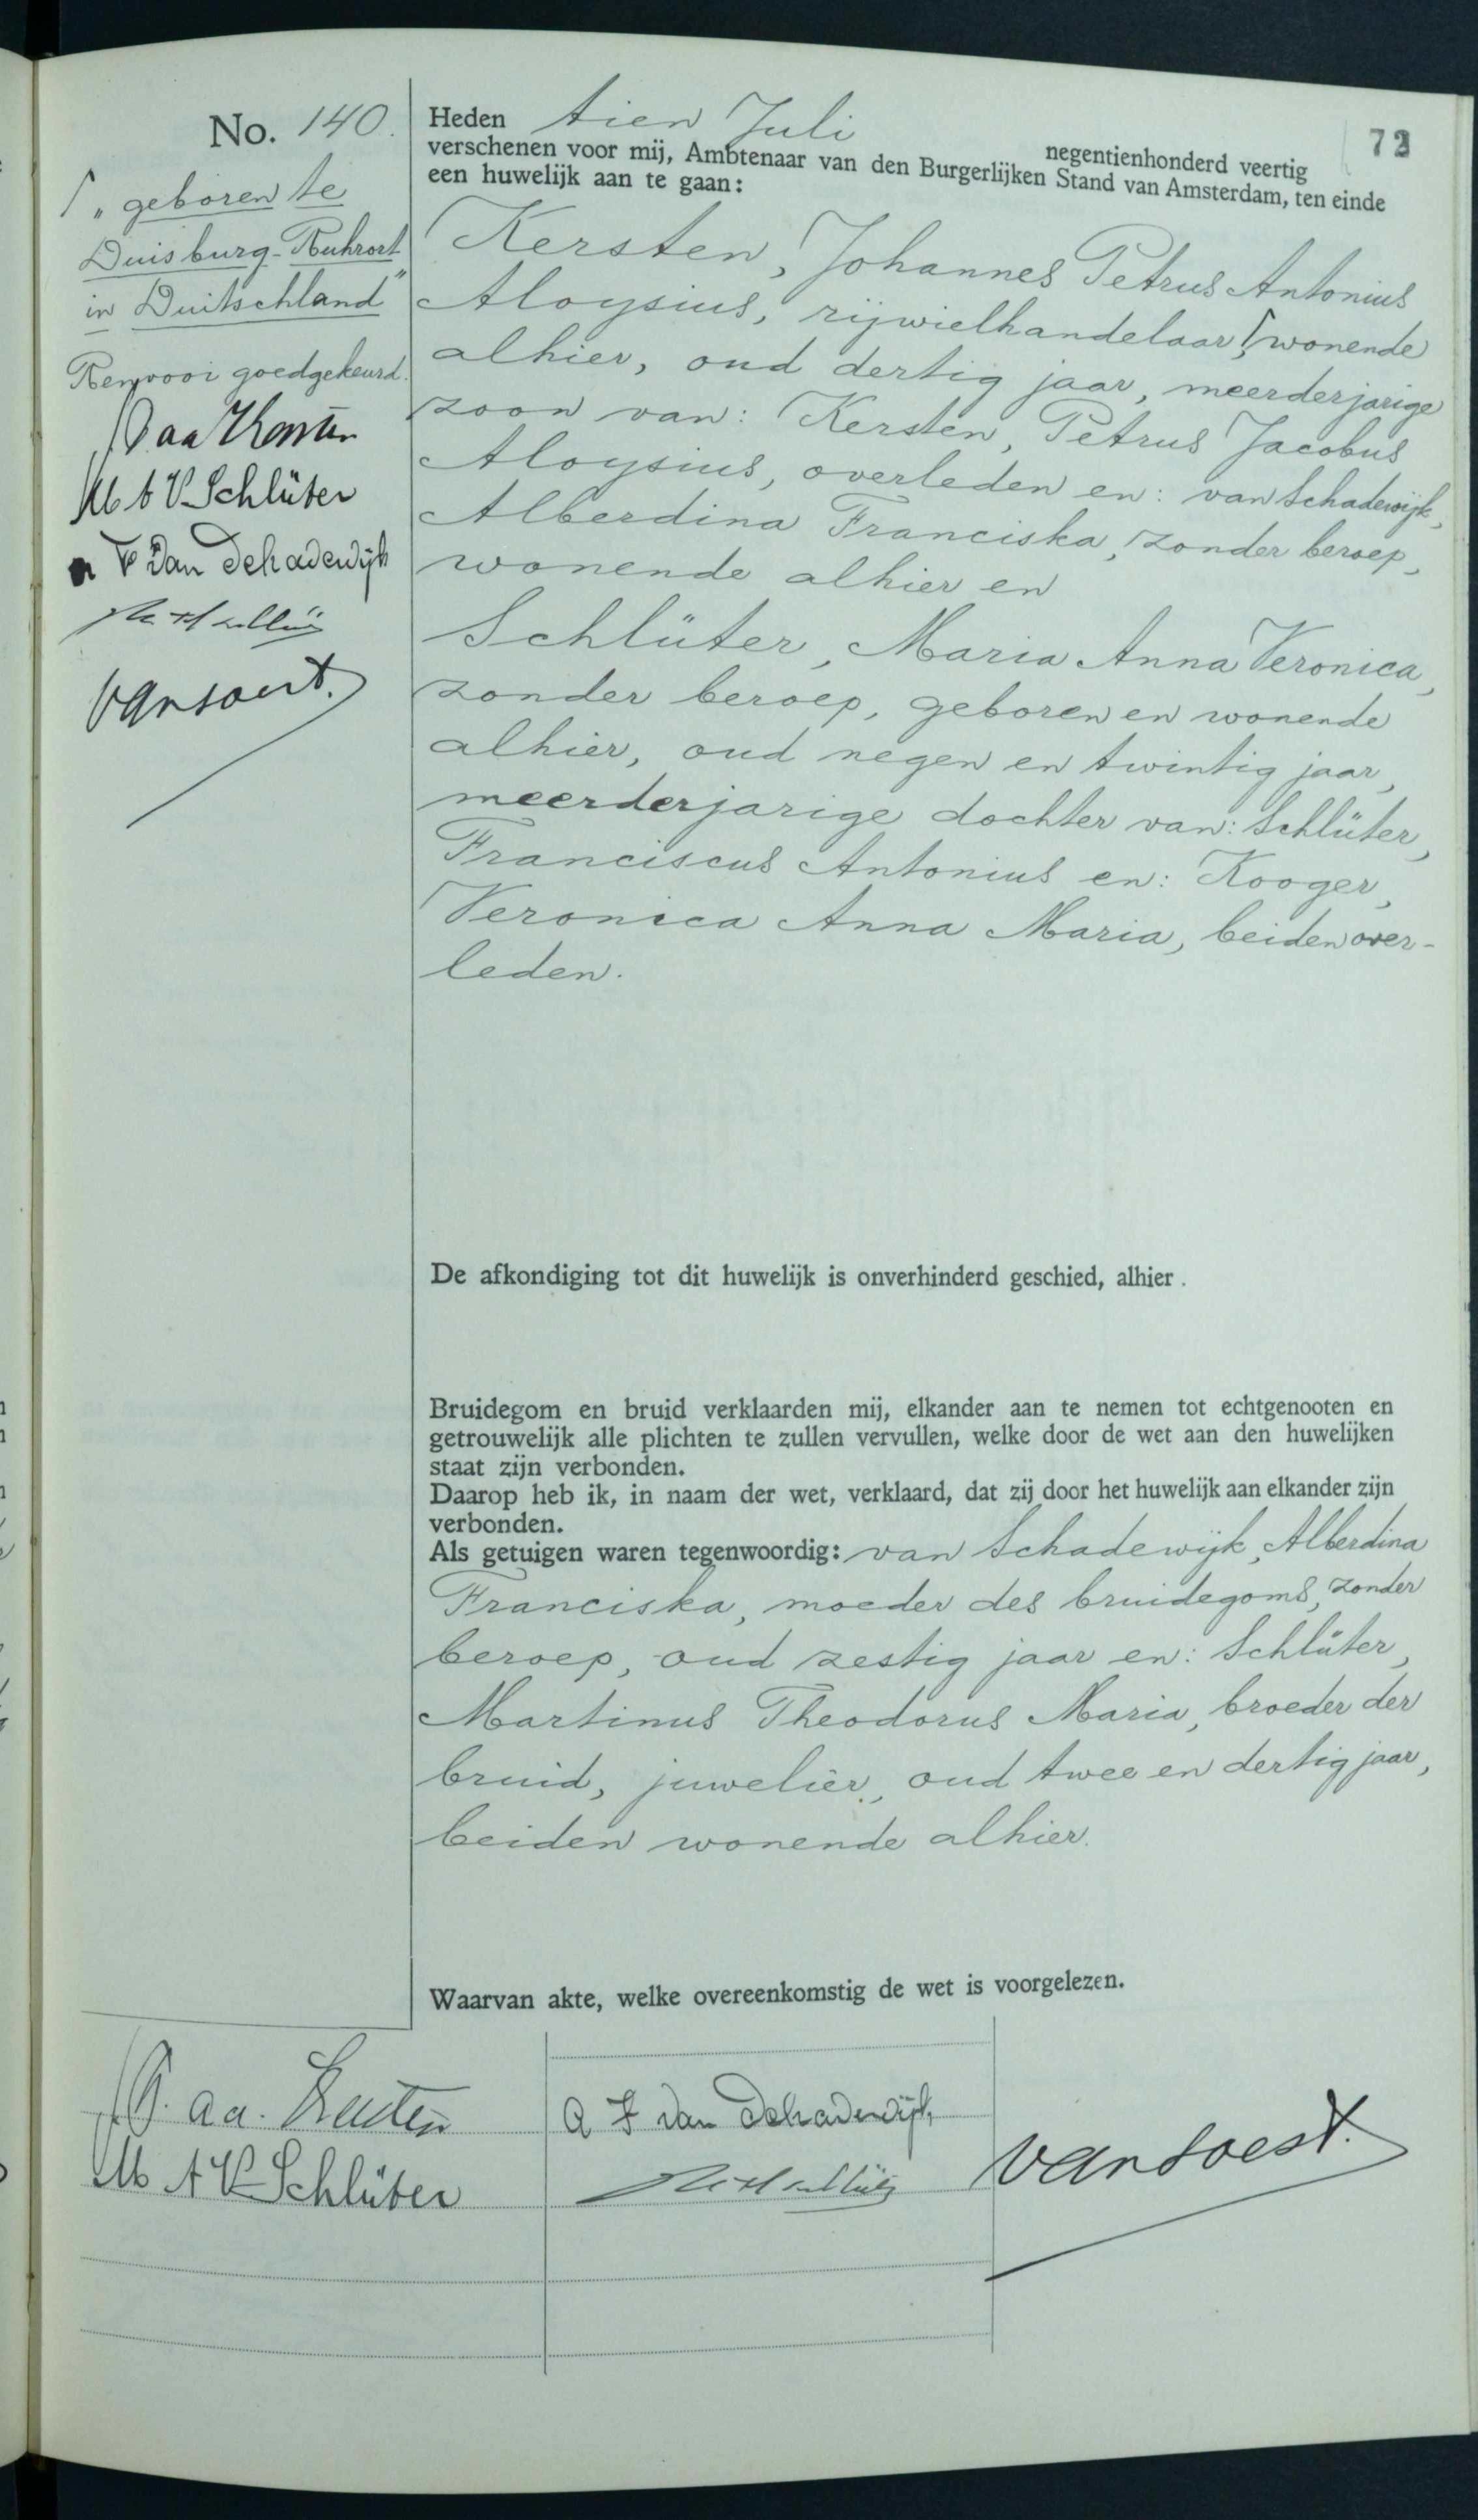 No. 140.
73
„geboren te
Duisburg-Ruhrort
in Duitschland”
Renvooi goedgekeurd.
M A V Schlüter
F van Schadewijk
van Soest.
Heden tien Juli
negentienhonderd veertig
verschenen voor mij, Ambtenaar van den Burgerlijken Stand van Amsterdam, ten einde
een huwelijk aan te gaan:
Kersten, Johannes Petrus Antonius
Aloysius, rijwielhandelaar, wonende
alhier, oud dertig jaar, meerderjarige
zoon van: Kersten, Petrus Jacobus
Aloysius, overleden en: van Schadewijk,
Alberdina Franciska, zonder beroep,
wonende alhier en
Schlüter, Maria Anna Veronica,
zonder beroep, geboren en wonende
alhier, oud negen en twintig jaar,
meerderjarige dochter van: Schlüter,
Franciscus Antonius en: Kooger,
Veronica Anna Maria, beiden over-
leden.
De afkondiging tot dit huwelijk is onverhinderd geschied, alhier.
Bruidegom en bruid verklaarden mij, elkander aan te nemen tot echtgenooten en
getrouwelijk alle plichten te zullen vervullen, welke door de wet aan den huwelijken
staat zijn verbonden.
Daarop heb ik, in naam der wet, verklaard, dat zij door het huwelijk aan elkander zijn
verbonden.
Als getuigen waren tegenwoordig: van Schadewijk, Alberdina
Franciska, moeder des bruidegoms, zonder
beroep, oud zestig jaar en: Schlüter,
Martinus Theodorus Maria, broeder der
bruid, juwelier, oud twee en dertig jaar,
beiden wonende alhier.
Waarvan akte, welke overeenkomstig de wet is voorgelezen.
J.P. a a. Kersten
M A V Schlüter
A F van Schadewijk
van Soest.